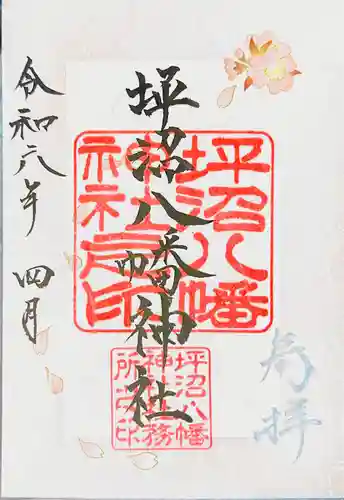 坪沼八幡神社
令和六年
四月
坪沼八幡
神社之印
坪沼八幡
神社務
所之印
奉拝